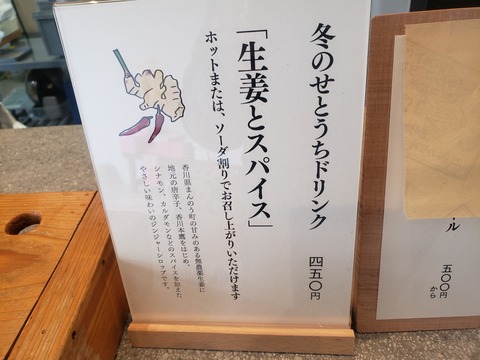 冬のせとうちドリンク 四五〇円
「生姜とスパイス」
ホットまたは、ソーダ割りでお召し上がりいただけます
香川県まんのう町の甘みのある無農薬生姜に
地元の唐辛子、香川本鷹をはじめ、
シナモン、カルダモンなどのスパイスを加えた
やさしい味わいのジンジャーシロップです。
ル
五〇〇円
から